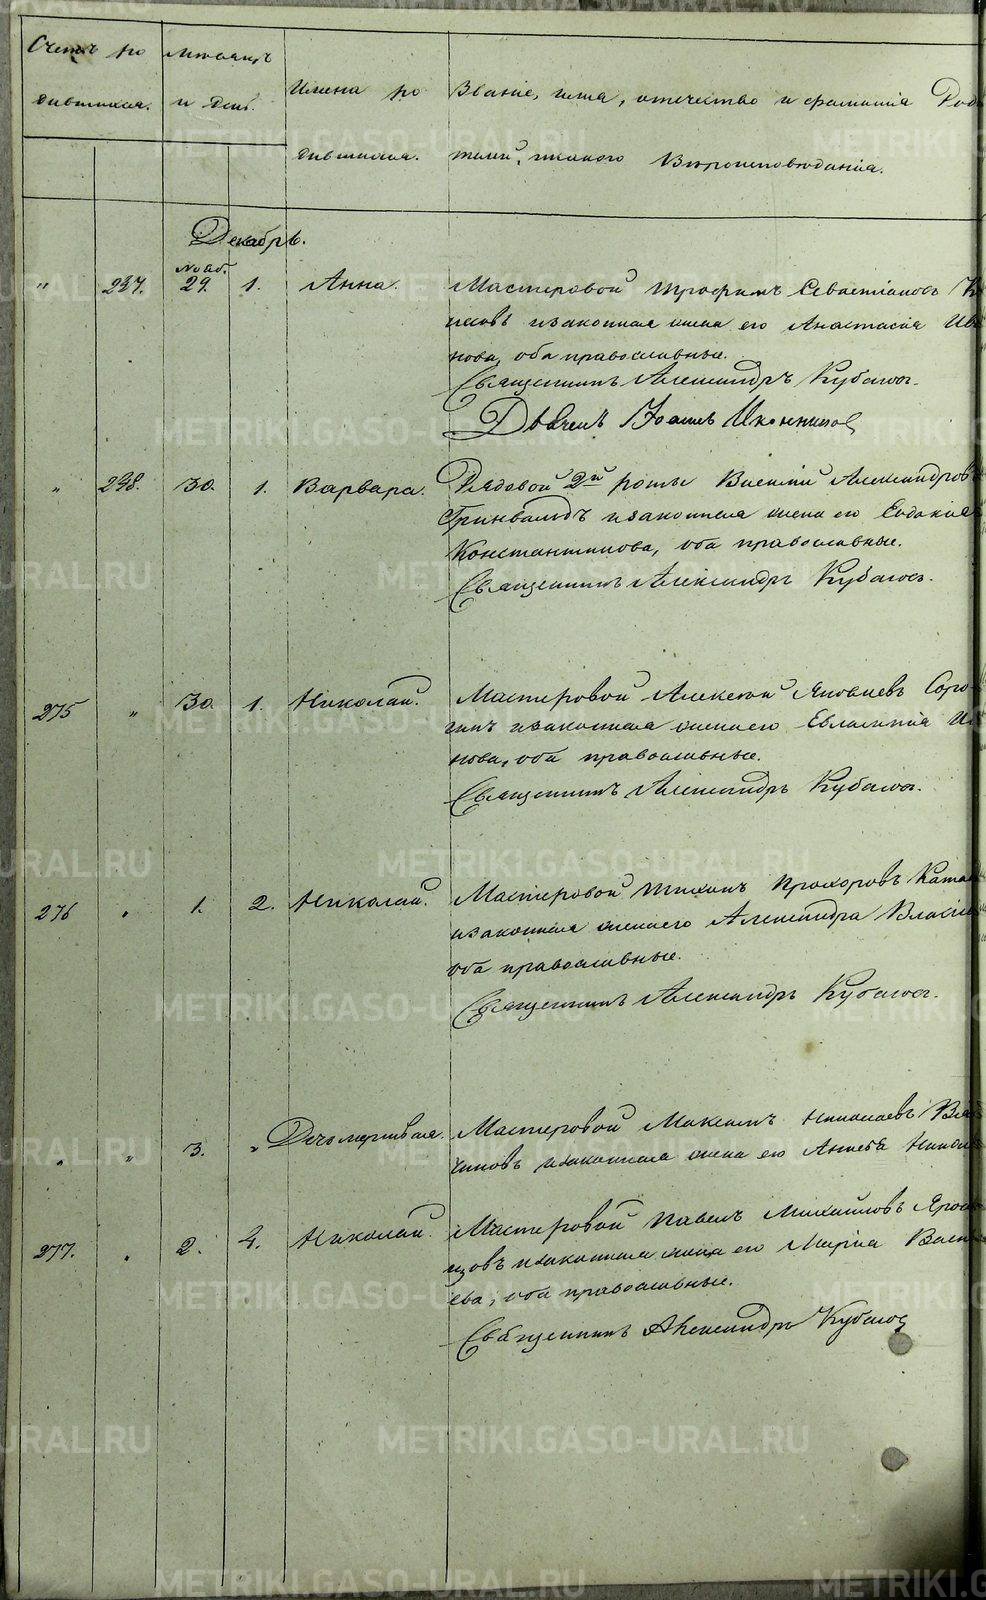 Счетъ ро
дившихся.
Мѣсяцъ
и день.
Имена ро
дившихся.
Званіе, имя, отечество и фамилія Род
телей, и какого Вѣроисповѣданія.
Декабрь.
" 237. Нояб. 29. 1. Анна. Мастеровой Трофимъ Севастіановъ
и законная жена его Анастасія Ив
нова, оба православные.
Священникъ Александръ Кубасов.
Дьячекъ Іоаннъ Иконников
" 238. 30. 1. Варвара. Рядовой 2й роты Василій Александровъ
Гринвальдъ и законная жена его Евдокія
Константинова, оба православные.
Священникъ Александръ Кубасов.
275 " 30. 1. Николай. Мастеровой Алексѣй Яковлевъ Соро
гинъ и законная жена его Евлампія И
нова, оба православные.
Священникъ Александръ Кубасов.
276 " 1. 2. Николай. Мастеровой Тихонъ Прохоровъ Ката
и законная жена его Александра Власіе
оба православные.
Священникъ Александръ Кубасов.
" " 3. " Мастеровой Максимъ Николаевъ
чиновъ и законная жена его Николае
277. " 2. 4. Николай. Мастеровой Павелъ Михайловъ Яросл
цовъ и законная жена его Марія Васил
ева, оба православные.
Священникъ Александръ Кубасов
METRIKI.GASO-URAL.RU